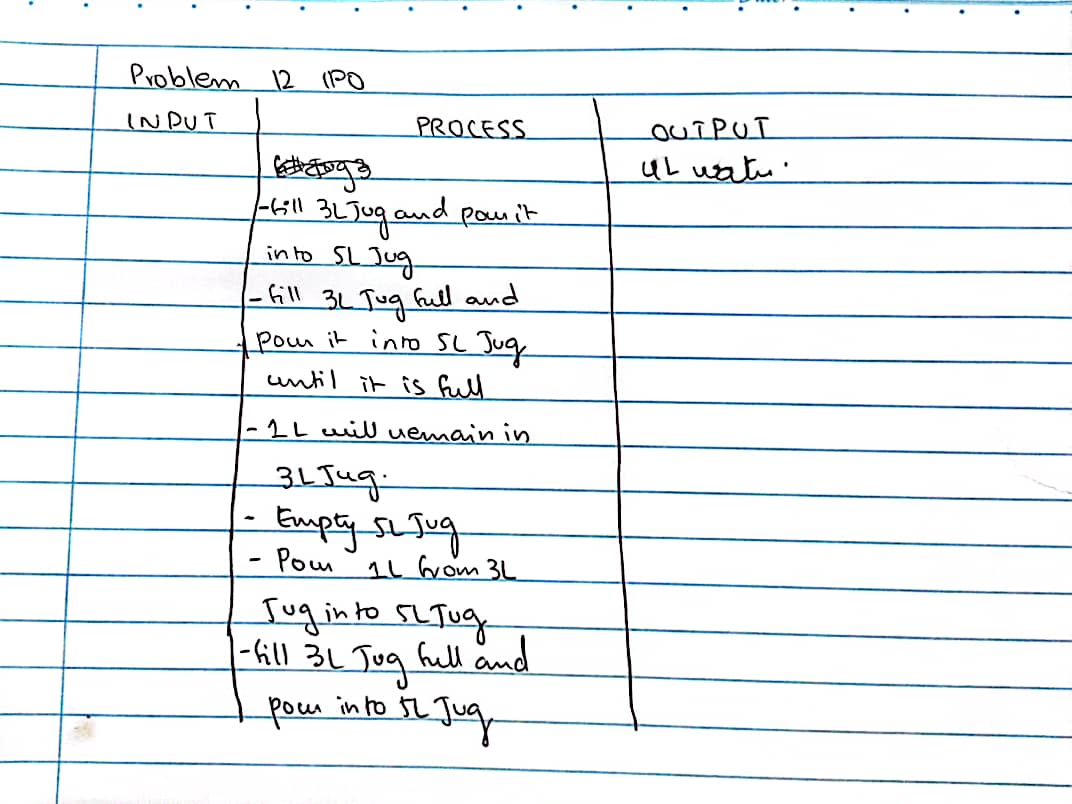 Problem 12 IPO
INPUT PROCESS OUTPUT
4L water.
-fill 3L Jug and pour it
into 5L Jug
- fill 3L Jug full and
pour it into 5L Jug
until it is full
- 1L will remain in
3L Jug.
- Empty 5L Jug
- Pour 1L from 3L
Jug into 5L Jug
-fill 3L Jug full and
pour into 5L Jug